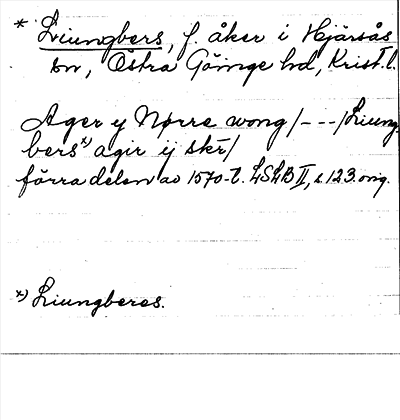 * Liungbers, f. åker i Hjärsås
sn, Östra Göinge hd, Krist. l.
Ager y Nørre wong /---/ Liung
bers x) agir ij skr/
förra delen av 1570-t. LSLB II, s. 123. orig.
x) Liungberes.